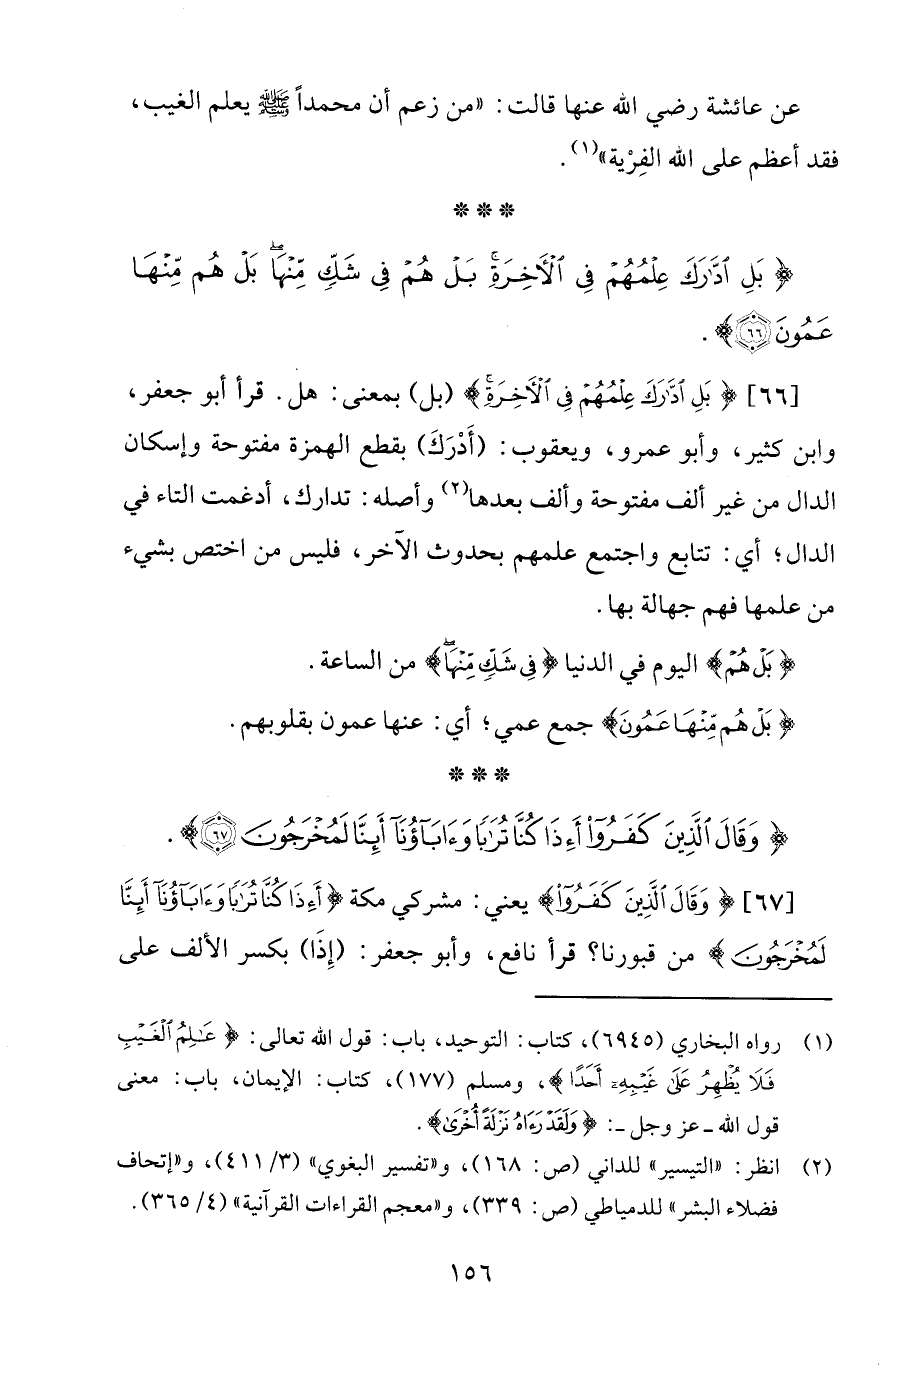 عن عائشة رضي الله عنها قالت: «من زعم أن محمداً ﷺ يعلم الغيب،
فقد أعظم على الله الفِرْية»(١).
* * *
﴿ بَلِ ٱدَّٰرَكَ عِلْمُهُمْ فِى ٱلْأَخِرَةِۚ بَلْ هُمْ فِى شَكٍّ مِّنْهَاۖ بَلْ هُم مِّنْهَا
عَمُونَ ٦٦ ﴾ .
[٦٦] ﴿ بَلِ ٱدَّٰرَكَ عِلْمُهُمْ فِى ٱلْأَخِرَةِۚ ﴾ (بل) بمعنى: هل. قرأ أبو جعفر،
وابن كثير، وأبو عمرو، ويعقوب: (أَدْرَكَ) بقطع الهمزة مفتوحة وإسكان
الدال من غير ألف مفتوحة وألف بعدها(٢) وأصله: تدارك، أدغمت التاء في
الدال؛ أي: تتابع واجتمع علمهم بحدوث الآخر، فليس من اختص بشيء
من علمها فهم جهالة بها.
﴿ بَلْ هُمْ ﴾ اليوم في الدنيا ﴿ فِى شَكٍّ مِّنْهَاۖ ﴾ من الساعة.
﴿ بَلْ هُم مِّنْهَا عَمُونَ ﴾ جمع عمي؛ أي: عنها عمون بقلوبهم.
* * *
﴿ وَقَالَ ٱلَّذِينَ كَفَرُوٓا۟ أَءِذَا كُنَّا تُرَٰبًا وَءَابَآؤُنَآ أَئِنَّا لَمُخْرَجُونَ ٦٧ ﴾ .
[٦٧] ﴿ وَقَالَ ٱلَّذِينَ كَفَرُوٓا۟ ﴾ يعني: مشركي مكة ﴿ أَءِذَا كُنَّا تُرَٰبًا وَءَابَآؤُنَآ أَئِنَّا
لَمُخْرَجُونَ ﴾ من قبورنا؟ قرأ نافع، وأبو جعفر: (إِذَا) بكسر الألف على
(١) رواه البخاري (٦٩٤٥)، كتاب: التوحيد، باب: قول الله تعالى: ﴿ عَٰلِمُ ٱلْغَيْبِ
فَلَا يُظْهِرُ عَلَىٰ غَيْبِهِۦٓ أَحَدًا ﴾، ومسلم (١٧٧)، كتاب: الإيمان، باب: معنى
قول الله ـ عز وجل ـ: ﴿ وَلَقَدْ رَءَاهُ نَزْلَةً أُخْرَىٰ ﴾ .
(٢) انظر: «التيسير» للداني (ص: ١٦٨)، و«تفسير البغوي» (٣/ ٤١١)، و«إتحاف
فضلاء البشر» للدمياطي (ص: ٣٣٩)، و«معجم القراءات القرآنية» (٤/ ٣٦٥).
١٥٦